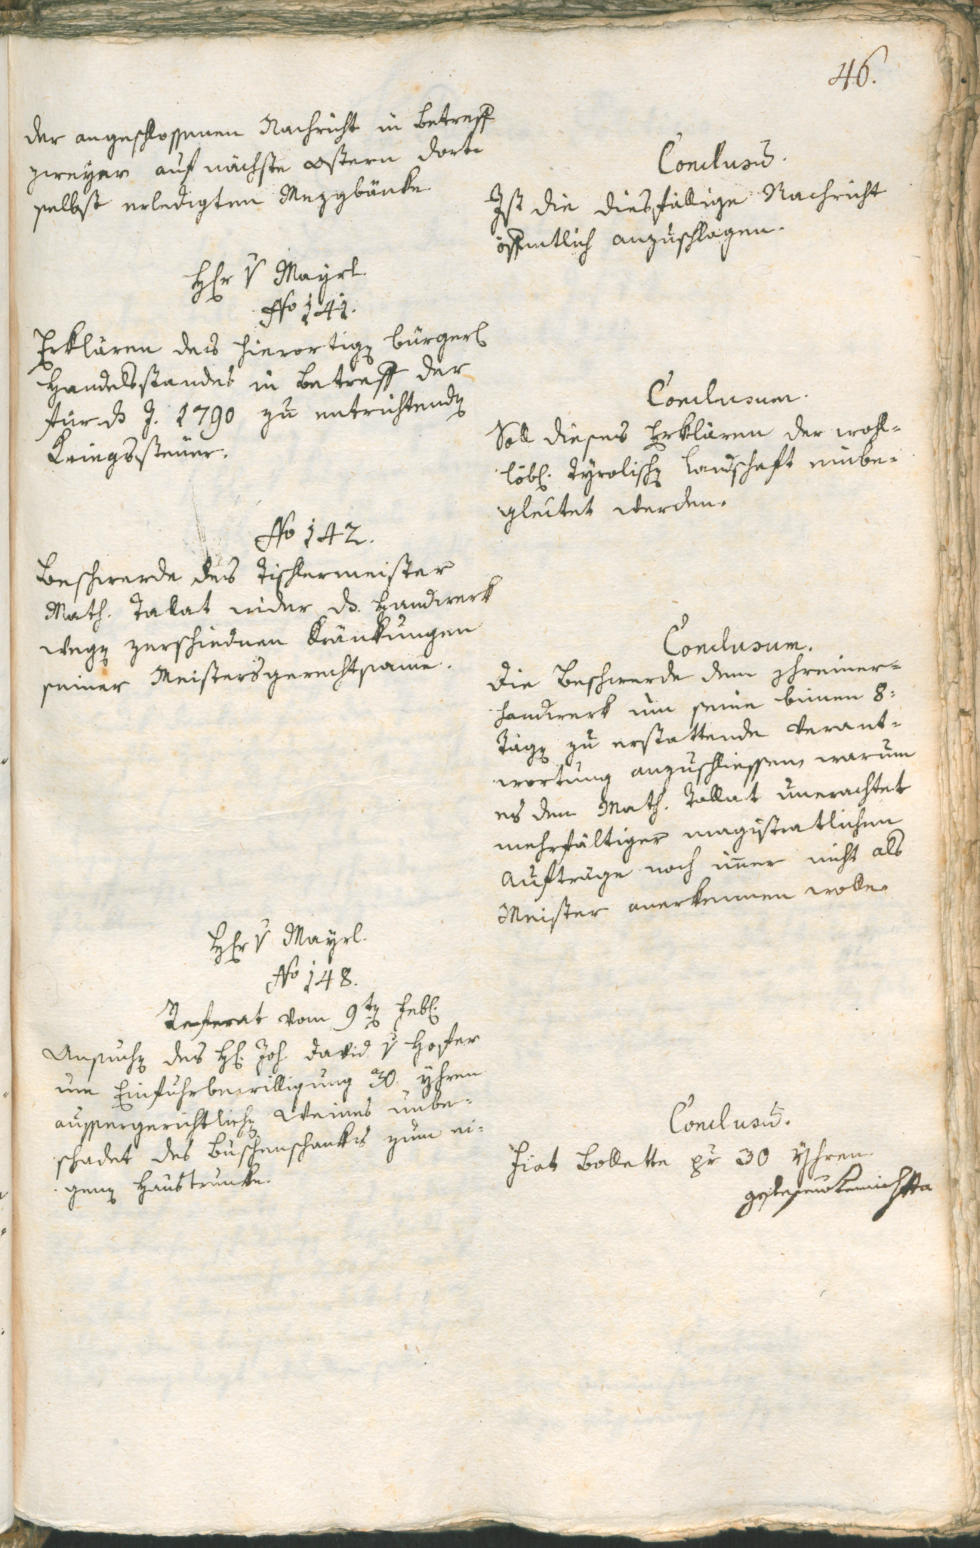 46.
der angeschlossenen Nachricht in Betreff
zweyer auf nächste Ostern dort-
selbst erledigten Mezgbänke.
Conclusū.
Ist die diesfällige Nachricht
öffentlich anzuschlagen.
Hr v Mayrl.
No 141.
Erklären des hierortigen bürgerl
Handelsstandes in Betreff der
für d J. 1790 zu entrichtenden
Kriegssteuer.
Conclusum.
Soll dieses Erklären der wohl-
löbl. Tyrolischen Landschaft einbe-
gleitet werden.
No 142.
Beschwerde des Tischlermeister
Math. Talat wider d. Handwerk
wegen zerschiednen Kränkungen
seiner Meistersgerechtsame.
Conclusum.
Die Beschwerde dem Schreiner-
handwerk um seine binnen 8-
Tägen zu erstattende Verant-
wortung anzuschliessen, warum
es den Math. Tallat unerachtet
mehrfältiger magistratlichen
Aufträge noch im̄er nicht als
Meister anerkennen wolle.
Hr v Mayrl.
No 148.
Referat vom 9ten Febl.
Ansuchen des H. Joh. David v Hofer
um Einfuhrbewilligung 30 Yhren
aussergerichtlichen Weines unbe-
schadet des Buschenschanks zum ei-
genen Haustrunke.
Conclusū.
Fiat Bollette pr 30 Yhren.